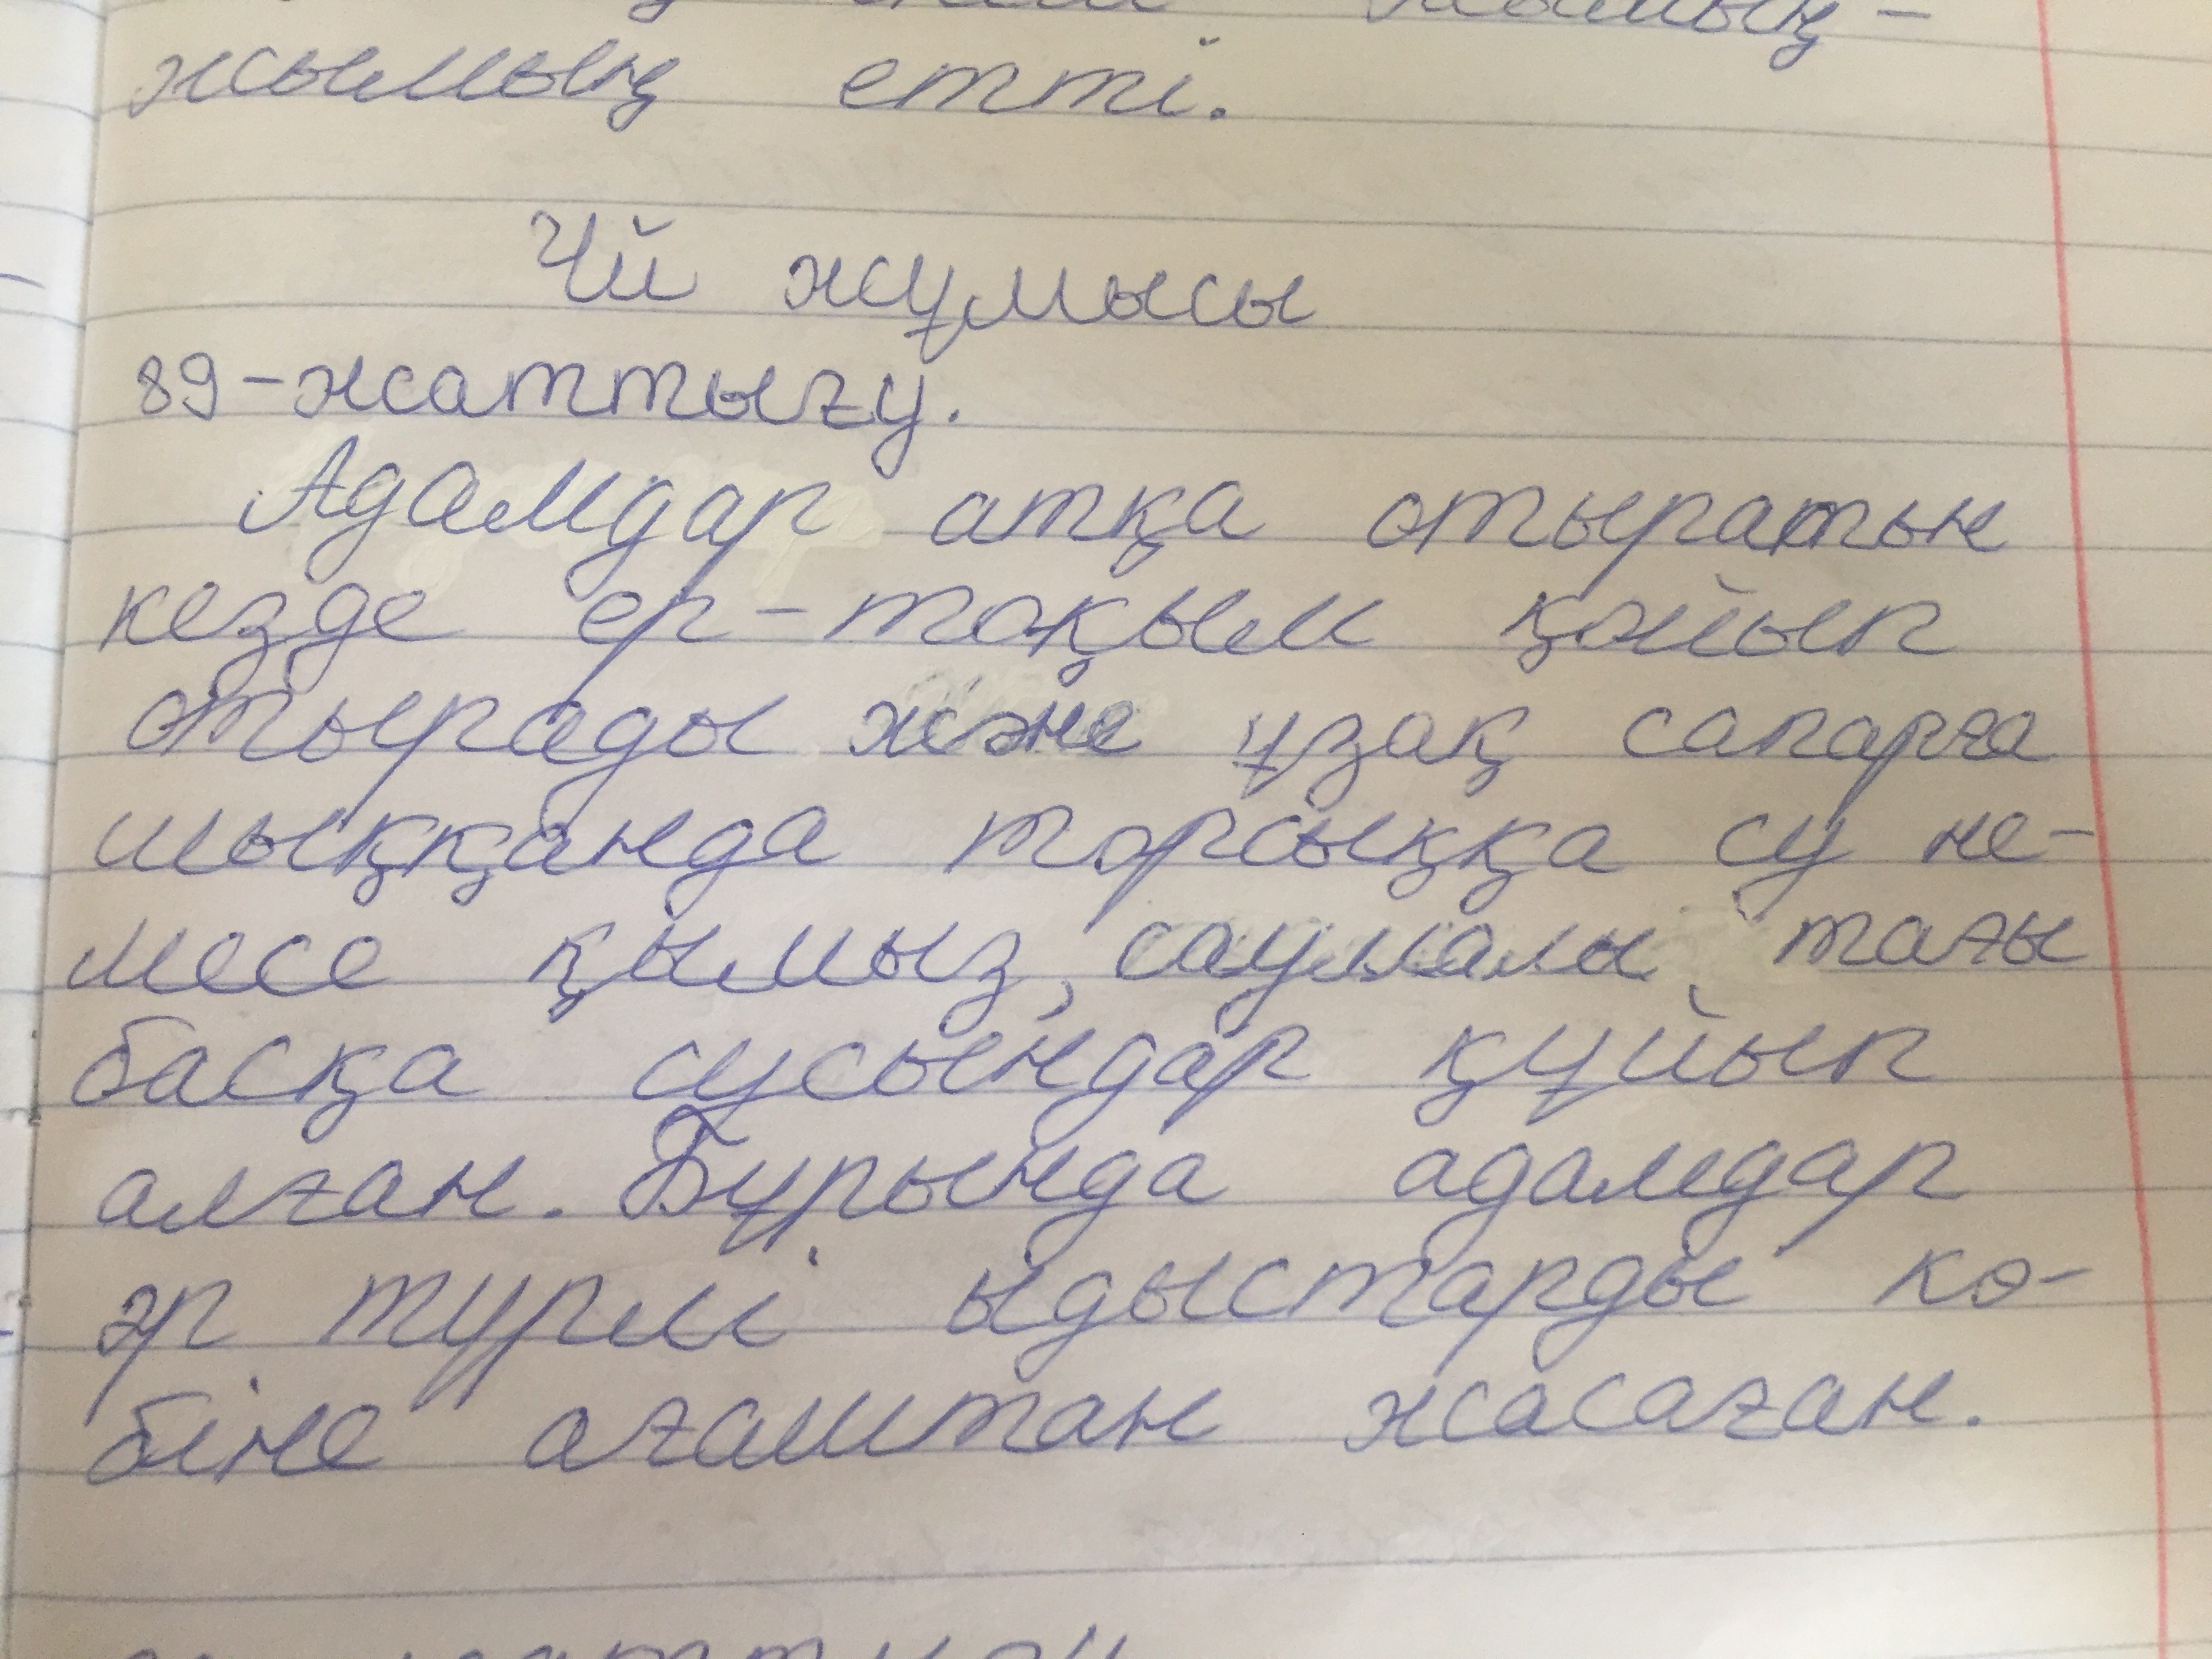 жымың етті.
Үй жұмысы
89-жаттығу.
Адамдар атқа отыратын
кезде ер-тоқым қойып
отырады және ұзақ сапарға
шыққанда торсыққа су не-
месе қымыз, саумалы, тағы
басқа сусындар құйып
алған. Бұрында адамдар
әр түрлі ыдыстарды кө-
біне ағаштан жасаған.